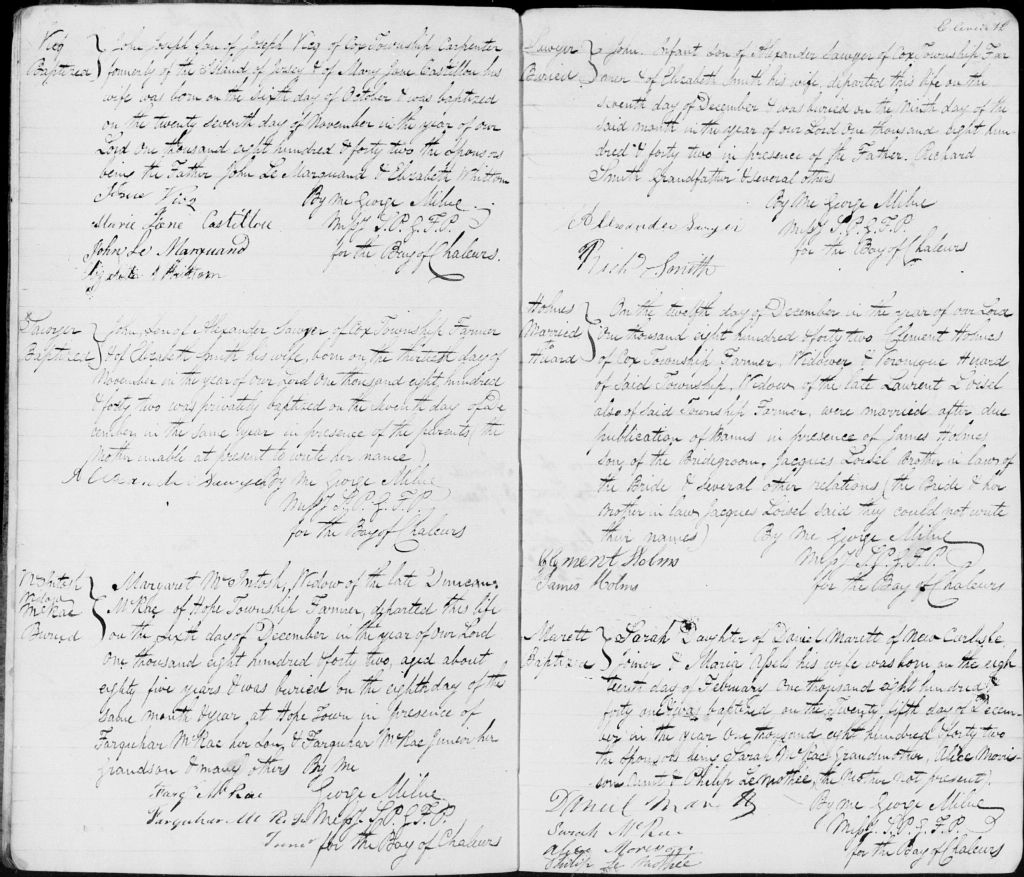 Vieq
Baptized
John Joseph Son of Joseph Vieq of Cox Township Carpenter
formerly of the Island of Jersey & of Mary Jane Castillou his
wife was born on the Sixth day of October & was baptized
on the twenty seventh day of November in the year of our
Lord One thousand eight hundred & forty two the Sponsors
being the Father John Le Marquand & Elizabeth Whittom
Vieq
By me George Milne
Marie Jane Castillou
Missy S.P.G.F.P.
John Le Marquand
for the Bay of Chaleurs.
Whittom
Sawyer
Baptized
John, Son of Alexander Sawyer of Cox Township Farmer
& of Elizabeth Smith his wife, born on the thirtieth day of
November in the year of our Lord One thousand eight hundred
& forty two was privately baptized on the seventh day of De
cember in the same year in presence of the parents (the
Mother unable at present to write her name)
By Me George Milne
Missy S.P.G.F.P.
for the Bay of Chaleurs
McIntosh
Widow
McRae
Buried
Margaret McIntosh, Widow of the late Duncan
McRae of Hope Township Farmer, departed this life
on the Sixth day of December in the year of Our Lord
One thousand eight hundred & forty two, aged about
eighty five years & was buried on the eighth day of the
same month & year at Hope Town in presence of
Farquhar McRae her Son, & Farquhar McRae Junior her
grandson & many others By Me
Farqr McRae
George Milne
Farquhar McRae Missy S.P.G.F.P.
Junr for the Bay of Chaleurs
Sawyer
Buried
John, Infant Son of Alexander Sawyer of Cox Township Far
mer & of Elizabeth Smith his wife, departed this life on the
seventh day of December & was buried on the Ninth day of the
said month in the year of our Lord One thousand eight hun
dred & forty two in presence of the Father. Richard
Smith Grandfather & several others
By Me George Milne
Missy S.P.G.F.P.
for the Bay of Chaleurs
Alexander
Richd Smith
Holmes
Married
to
Huard
On the twelfth day of December in the year of our Lord
One thousand eight hundred & forty two Clement Holmes
of Cox Township Farmer, Widower & Veronique Huard
of said Township, Widow of the late Laurent Loisel
also of said Township Farmer, were married after due
publication of Banns in presence of James Holmes
son of the Bridegroom, Jacques Loisel Brother in law of
the Bride & several other relations (the Bride & her
Brother in law Jacques Loisel said they could not write
their names)
By Me George Milne
Clement Holms
Missy S.P.G.F.P.
James Holms
for the Bay of Chaleurs
Marett
Baptized
Sarah Daughter of Daniel Marett of New Carlisle
Joiner & Maria his wife was born on the eigh
teenth day of February One thousand eight hundred &
forty one & was baptized on the Twenty fifth day of Decem-
ber in the year One thousand eight hundred & forty two
the Sponsors being Sarah McRae Grandmother, Alice Morri-
son Aunt & Philip Le Mothee, (the Mother not present).
Daniel Marett
By Me George Milne
Sarah McRae
Missy S.P.G.F.P.
Alice
for the Bay of Chaleurs
Philip Le Mothee